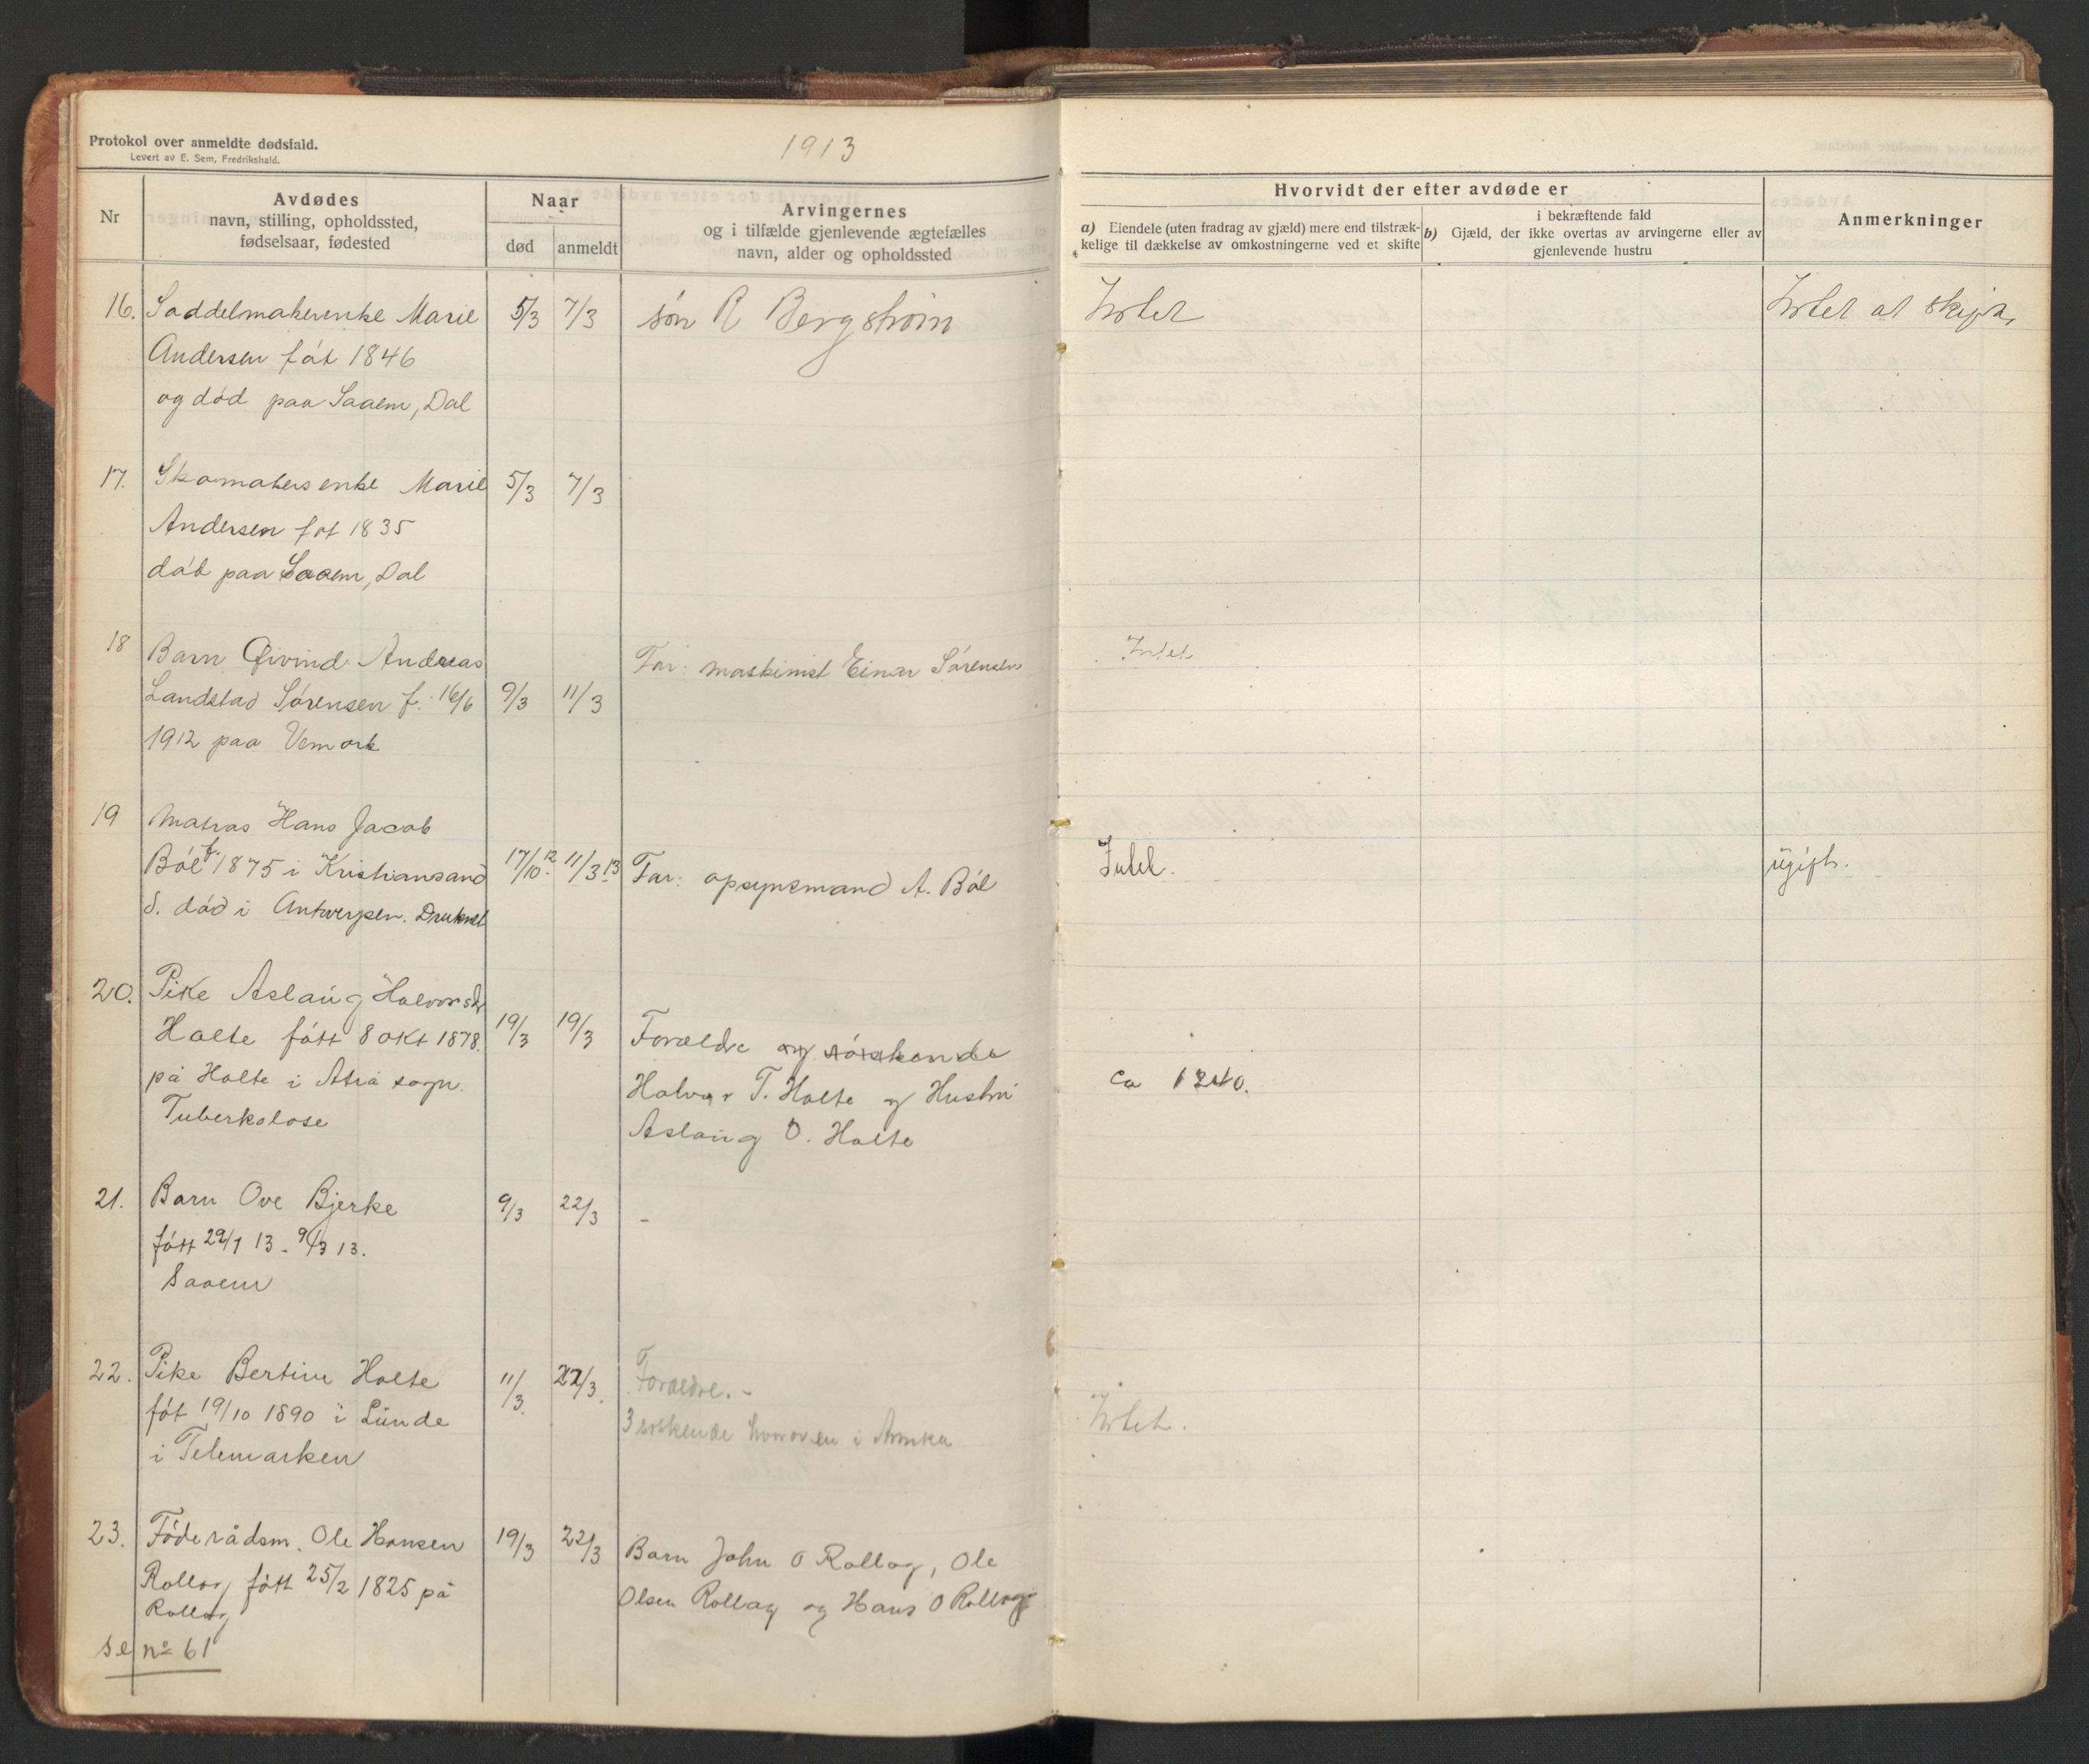 Protokol over anmeldte dødsfald.
Levert av E. Sem, Fredrikshald.
1913
Nr
Avdødes
navn, stilling, opholdssted,
fødselsaar, fødested
Naar
død
anmeldt
Arvingernes
og i tilfælde gjenlevende ægtefælles
navn, alder og opholdssted
Hvorvidt der efter avdøde er
a) Eiendele (uten fradrag av gjæld) mere end tilstræk-
kelige til dækkelse av omkostningerne ved et skifte
i bekræftende fald
b) Gjæld, der ikke overtas av arvingerne eller av
gjenlevende hustru
Anmerkninger
16. Saddelmakerenke Marie 5/3 7/3 søn R Bergstrøm Intet Intet at skifte
Andersen føt 1846
og død paa Saaem, Dal
17. Skomakersenke Marie 5/3 7/3
Andersen føt 1835
død paa Saaem, Dal
18 Barn Øivind Andreas Far: maskinist Einar Sørensen Intet
Landstad Sørensen f. 16/6 9/3 11/3
1912 paa Vemork
19 Matros Hans Jacob
Bøe f. 1875 i Kristiansand 17/10 12. 11/3 13 Far: opsynsmand A. Bøe Intet. ugift.
S. død i Antwerpen. Druknet
20. Pike Aslaug Halvorsdr
Holte født 8 okt 1878. 19/3 19/3 Forældre og søskende
på Holte i Atrå sogn. Halvor T. Holte og Hustru ca 1240.
Tuberkolose Aslaug O. Holte
21. Barn Ove Bjerke 9/3 22/3 -
født 29/1 13 - 9/3 13.
Saaem
22. Pike Bertine Holte 11/3. 22/3. Forældre. -
føt 19/10 1890 i Lunde 3 søskende hvorav en i Amrka Intet.
i Telemarken
23. Føderådsm. Ole Hansen 19/3 22/3 Barn John O Rollag, Ole
Rollag født 25/2 1825 på Olsen Rollag og Hans O Rollag
Rollag
se no 61